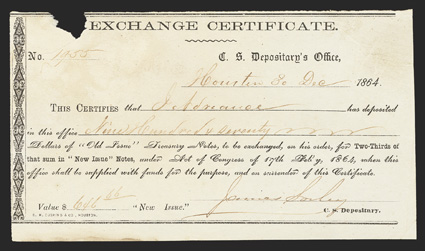 EXCHANGE CERTIFICATE.
No. 1255 C. S. Depositary's Office,
Houston 30 Dec 1864.
THIS CERTIFIES that has deposited
in this office Nine Hundred &
Dollars of "Old Issue" Treasury Notes, to be exchanged, on his order, for Two-Thirds of
that sum in "New Issue" Notes, under Act of Congress of 17th Feb'y, 1864, when this
office shall be supplied with funds for the purpose, and on surrender of this Certificate.
James Sorley
Value $ "New Issue." C. S. Depositary.